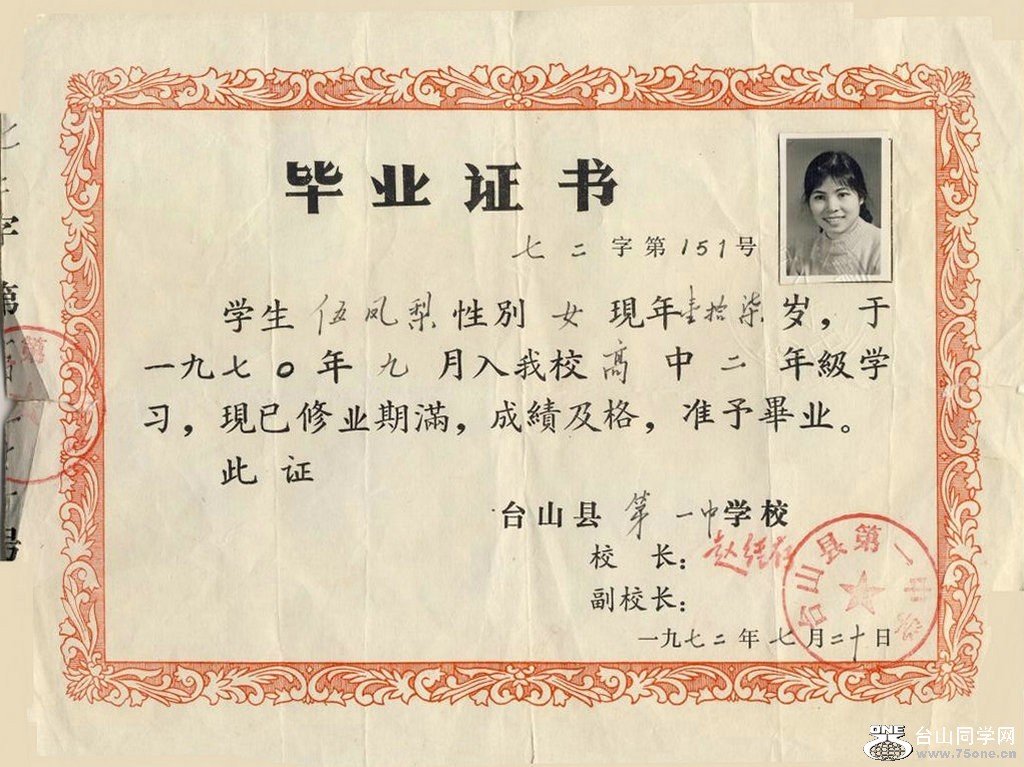 毕业证书
七二字第151号
学生 伍凤梨 性别 女 现年壹拾柒岁，于
一九七〇年 九 月入我校高 中 二 年級学
习，现已修业期滿，成績及格，准予畢业。
此 证
台山县 第一中学校
校 长：
副校长：
一九七二年七月二十日
台山县第一中学
ONE
75
台山同学网
www.75one.cn